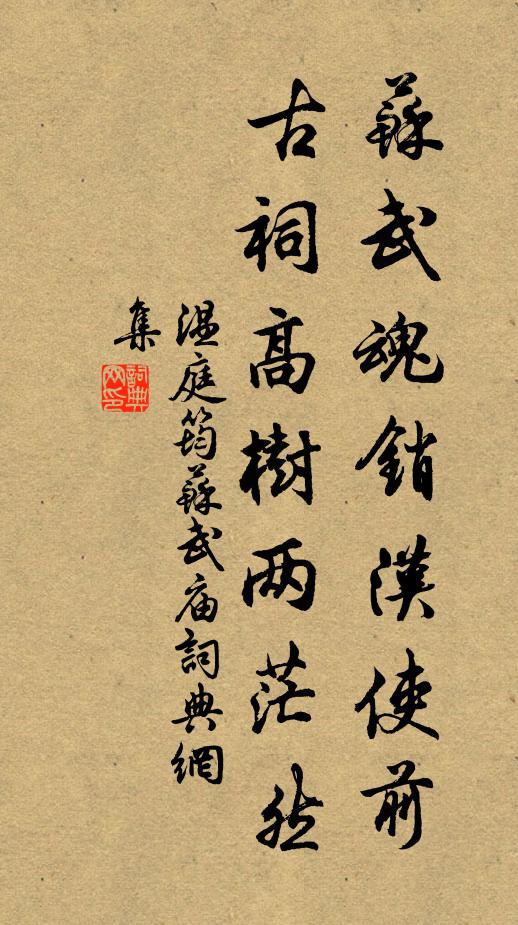 蘇武魂銷漢使前
古祠高樹两茫然
温庭筠蘇武庙詞典網
集
詞典网印